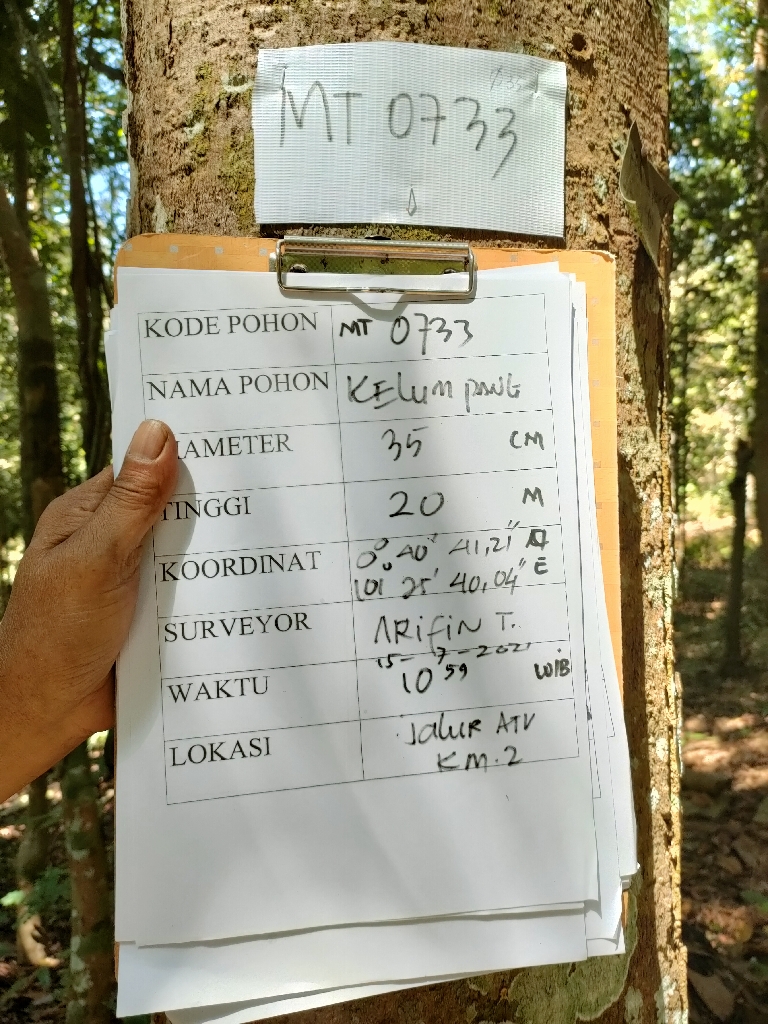 MT 0733
KODE POHON MT 0733
NAMA POHON KELUMPANG
IAMETER 35 CM
TINGGI 20 M
KOORDINAT 0° 40' 41,21"
101° 25' 40,04" E
SURVEYOR ARIFIN T.
15-7-2021
WAKTU 10 59 WIB
LOKASI Jalur ATV
KM.2